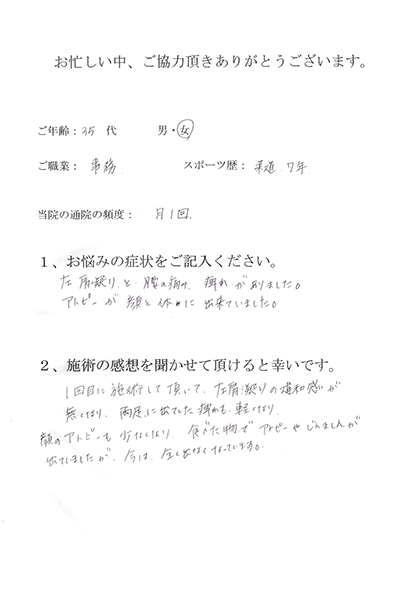 お忙しい中、ご協力頂きありがとうございます。
ご年齢：35 代 男・女
ご職業： 事務 スポーツ歴： 柔道 7年
当院の通院の頻度： 月1回
1、お悩みの症状をご記入ください。
左肩凝りと腰の痛み、痺れがありました。
アトピーが顔と体中に出来ていました。
2、施術の感想を聞かせて頂けると幸いです。
1回目に施術して頂いて、左肩凝りの違和感が
無くなり、両足に出てた痺れも軽くなり、
顔のアトピーも少なくなり、食べた物でアトピーやじんましんが
出ていましたが、今は、全く出なくなっています。